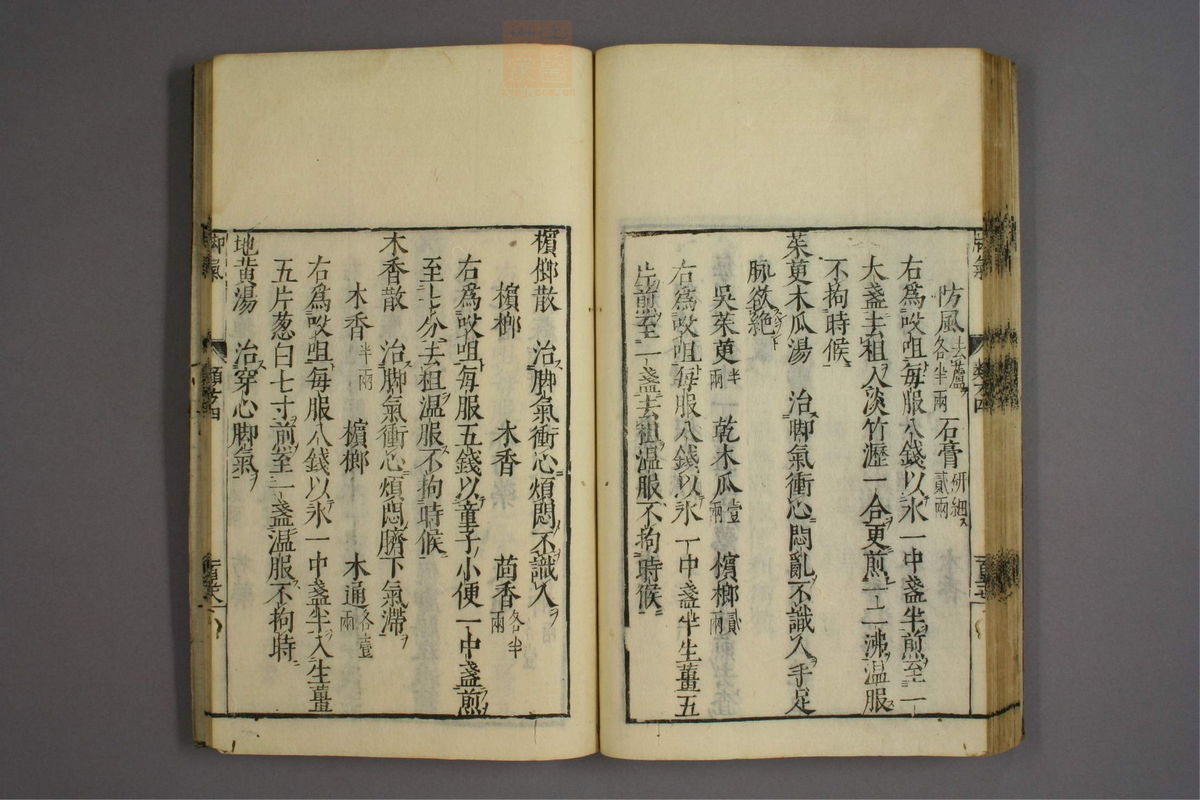 防風去蘆各半兩 石膏研細貳兩
右爲㕮咀每服八錢以水一中盞半煎至一
大盞去柤入淡竹瀝一合更煎一二沸温服
不拘時候
茱萸木瓜湯 治脚氣衝心悶亂不識人手足
脉欲絶
吳茱萸半兩 乾木瓜壹兩 檳榔貳兩
右爲㕮咀每服八錢以水一中盞半生薑五
片煎至一盞去柤温服不拘時候
檳榔散 治脚氣衝心煩悶不識人
檳榔 木香 茴香各半兩
右爲㕮咀每服五錢以童子小便一中盞煎
至七分去柤温服不拘時候
木香散 治脚氣衝心煩悶臍下氣滯
木香半兩 檳榔 木通各壹兩
右爲㕮咀每服八錢以水一中盞半入生薑
五片葱白七寸煎至一盞温服不拘時
地黄湯 治穿心脚氣
脚氣